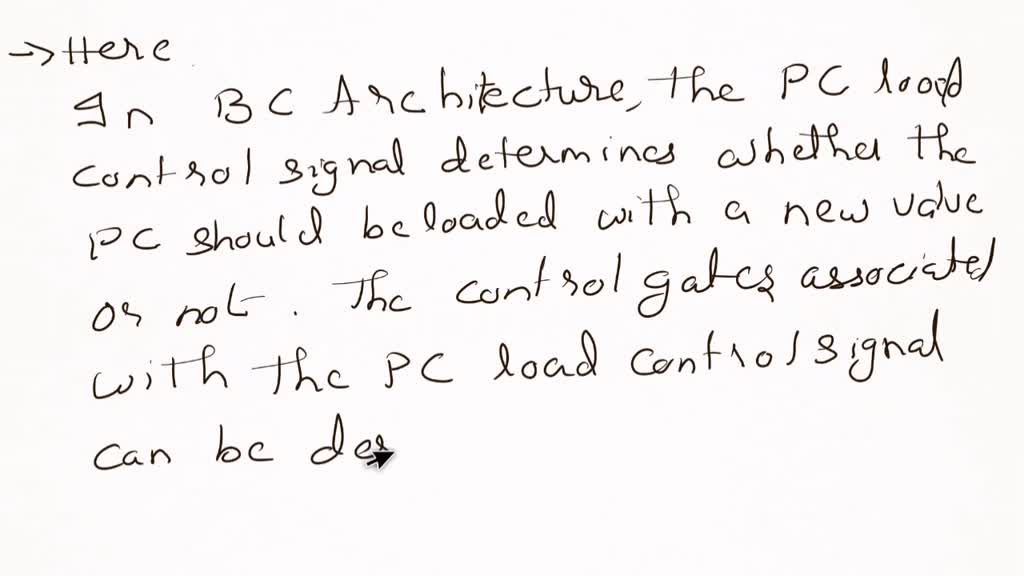 → Here
In BC Architecture, the PC load
control signal determines whether the
PC should be loaded with a new value
or not. The control gates associated
with the PC load control signal
can be des